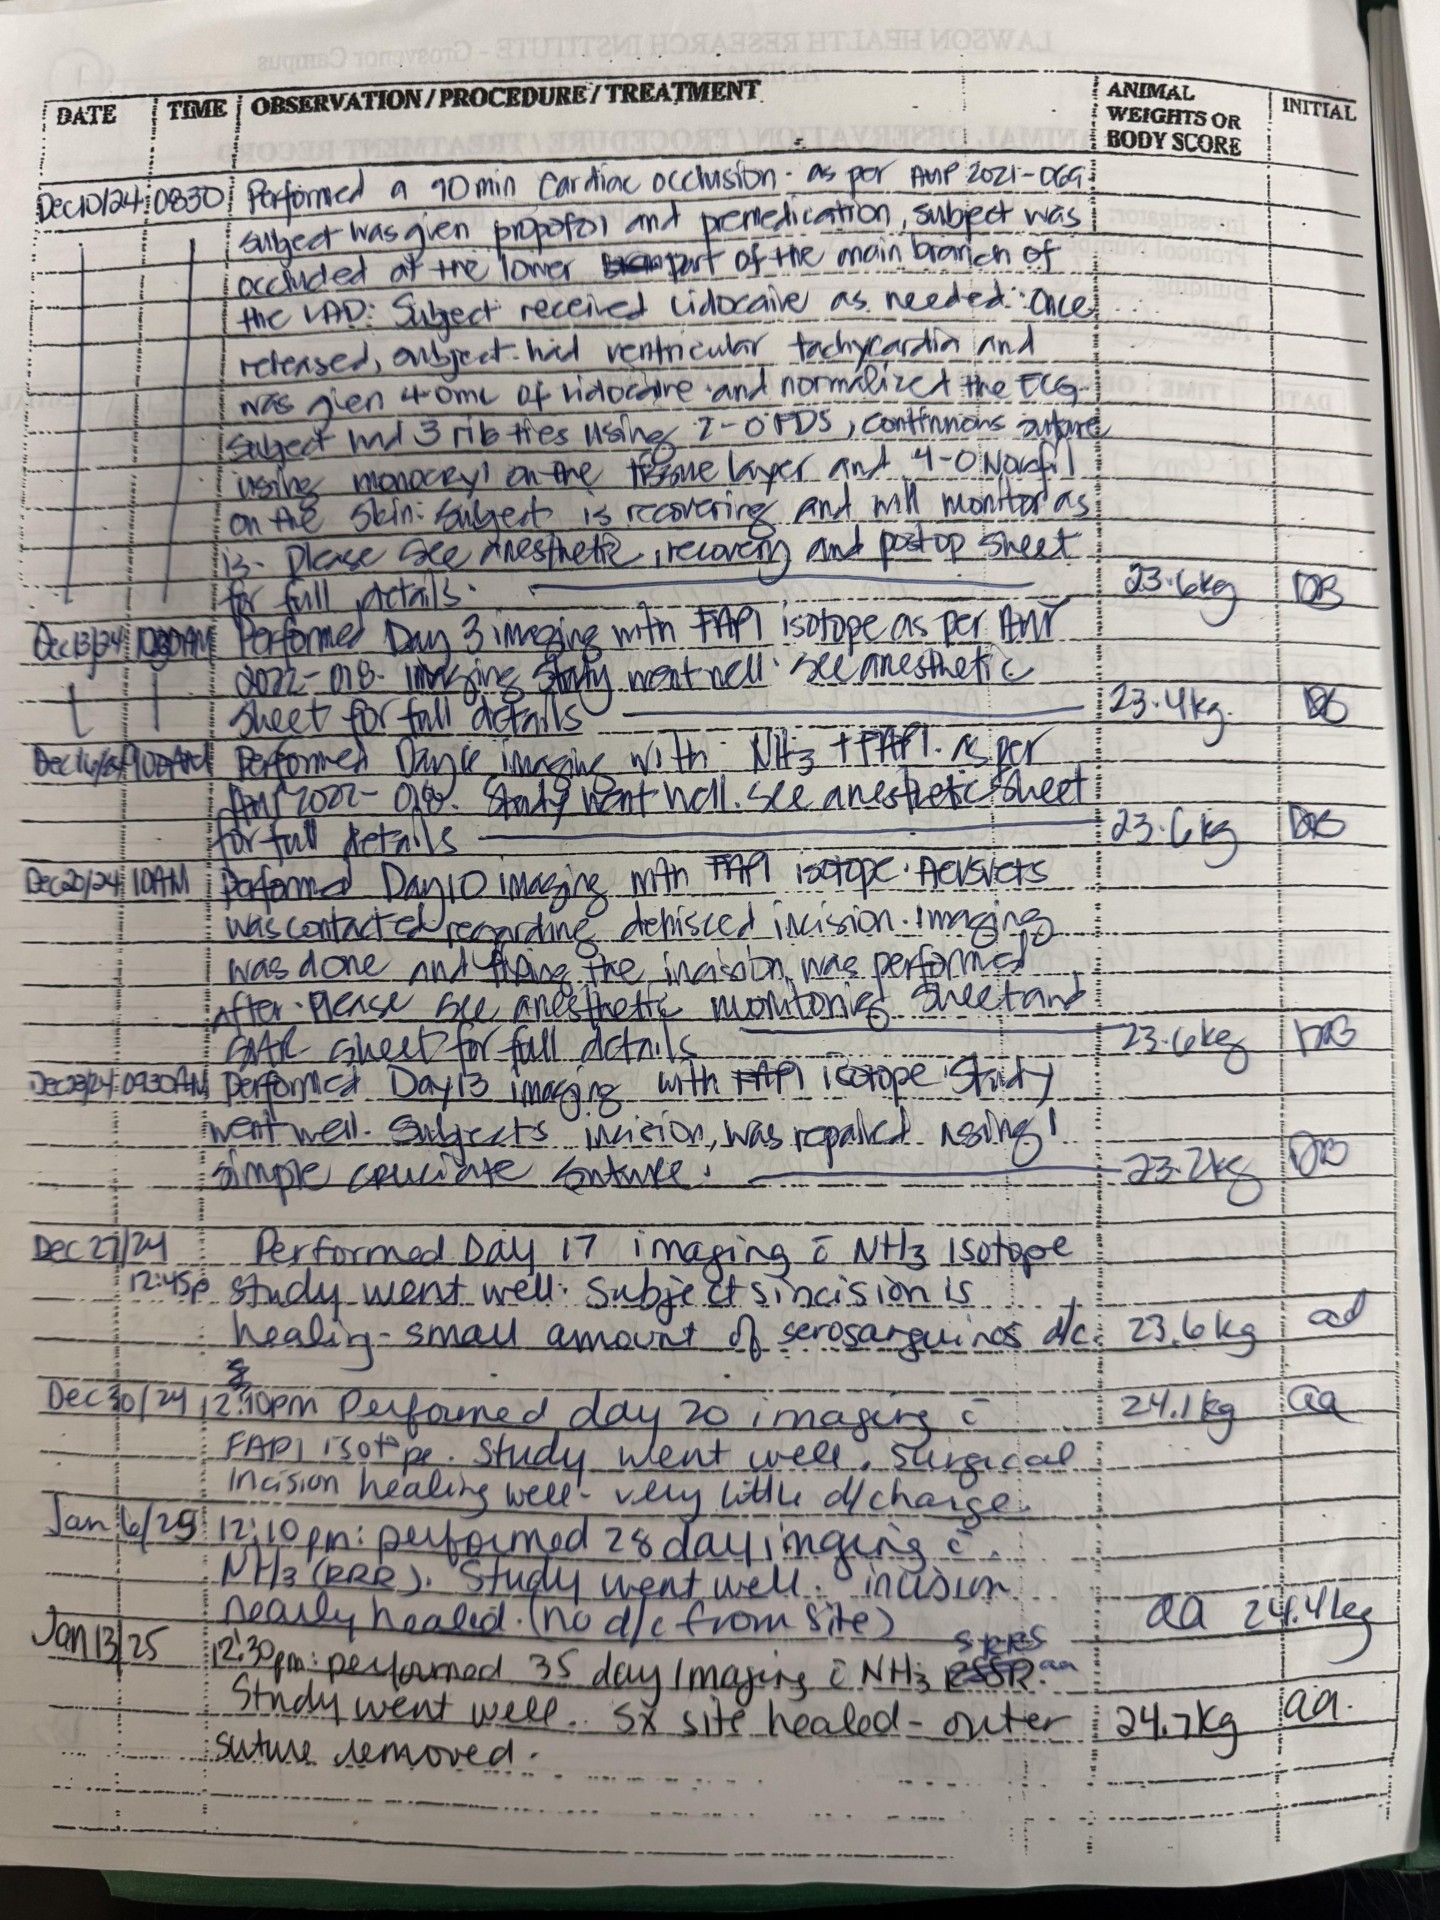 DATE TIME OBSERVATION / PROCEDURE / TREATMENT ANIMAL WEIGHTS OR BODY SCORE INITIAL
Dec 10/24 0830 Performed a 90min cardiac occlusion. as per AUP 2021-069.
subject was given propofol and premedication, subject was
occluded at the lower part of the main branch of
the LAD. Subject received lidocaine as needed. Once
released, subject had ventricular tachycardia and
was given 40mL of lidocaine and normalized the ECG.
Subject had 3 rib ties using 2-0 PDS, continuous suture
using monocryl on the tissue layer and 4-0 Novafil
on the skin. Subject is recovering and will monitor as
is. Please see anesthetic, recovery and postop sheet
for full details. 23.6kg DB
Dec 13/24 Performed Day 3 imaging with FAPI isotope as per AUP
2022-018. Imaging study went well. see anesthetic
sheet for full details 23.4kg. DB
Dec 16/24 Performed Day 6 imaging with NH3 + FAPI. as per
AUP 2022-018. Study went well. See anesthetic sheet
for full details 23.6kg DB
Dec 20/24 10AM Performed Day 10 imaging with FAPI isotope. ACVS vets
was contacted regarding dehisced incision. Imaging
was done and fixing the incision was performed
after. Please see anesthetic monitoring sheet and
sheet for full details 23.6kg DB
Dec 23/24 0930AM Performed Day 13 imaging with FAPI isotope. Study
went well. Subjects incision, was repaired using 1
simple cruciate suture. 23.2kg DB
Dec 27/24 Performed Day 17 imaging c̄ NH3 isotope
12:45p study went well. Subjects incision is
healing - small amount of serosanguinos d/c. 23.6kg ad
Dec 30/24 12:10pm Performed day 20 imaging c̄ 24.1kg aa
FAPI isotope. Study went well. Surgical
incision healing well - very little d/charge.
Jan 6/25 12:10pm: performed 28 day imaging c̄
NH3 (RRR). Study went well. incision
nearly healed. (no d/c from site) aa 24.4kg
Jan 13/25 12:30pm: performed 35 day imaging c̄ NH3 aa
Study went well. Sx site healed - outer 24.7kg aa.
suture removed.